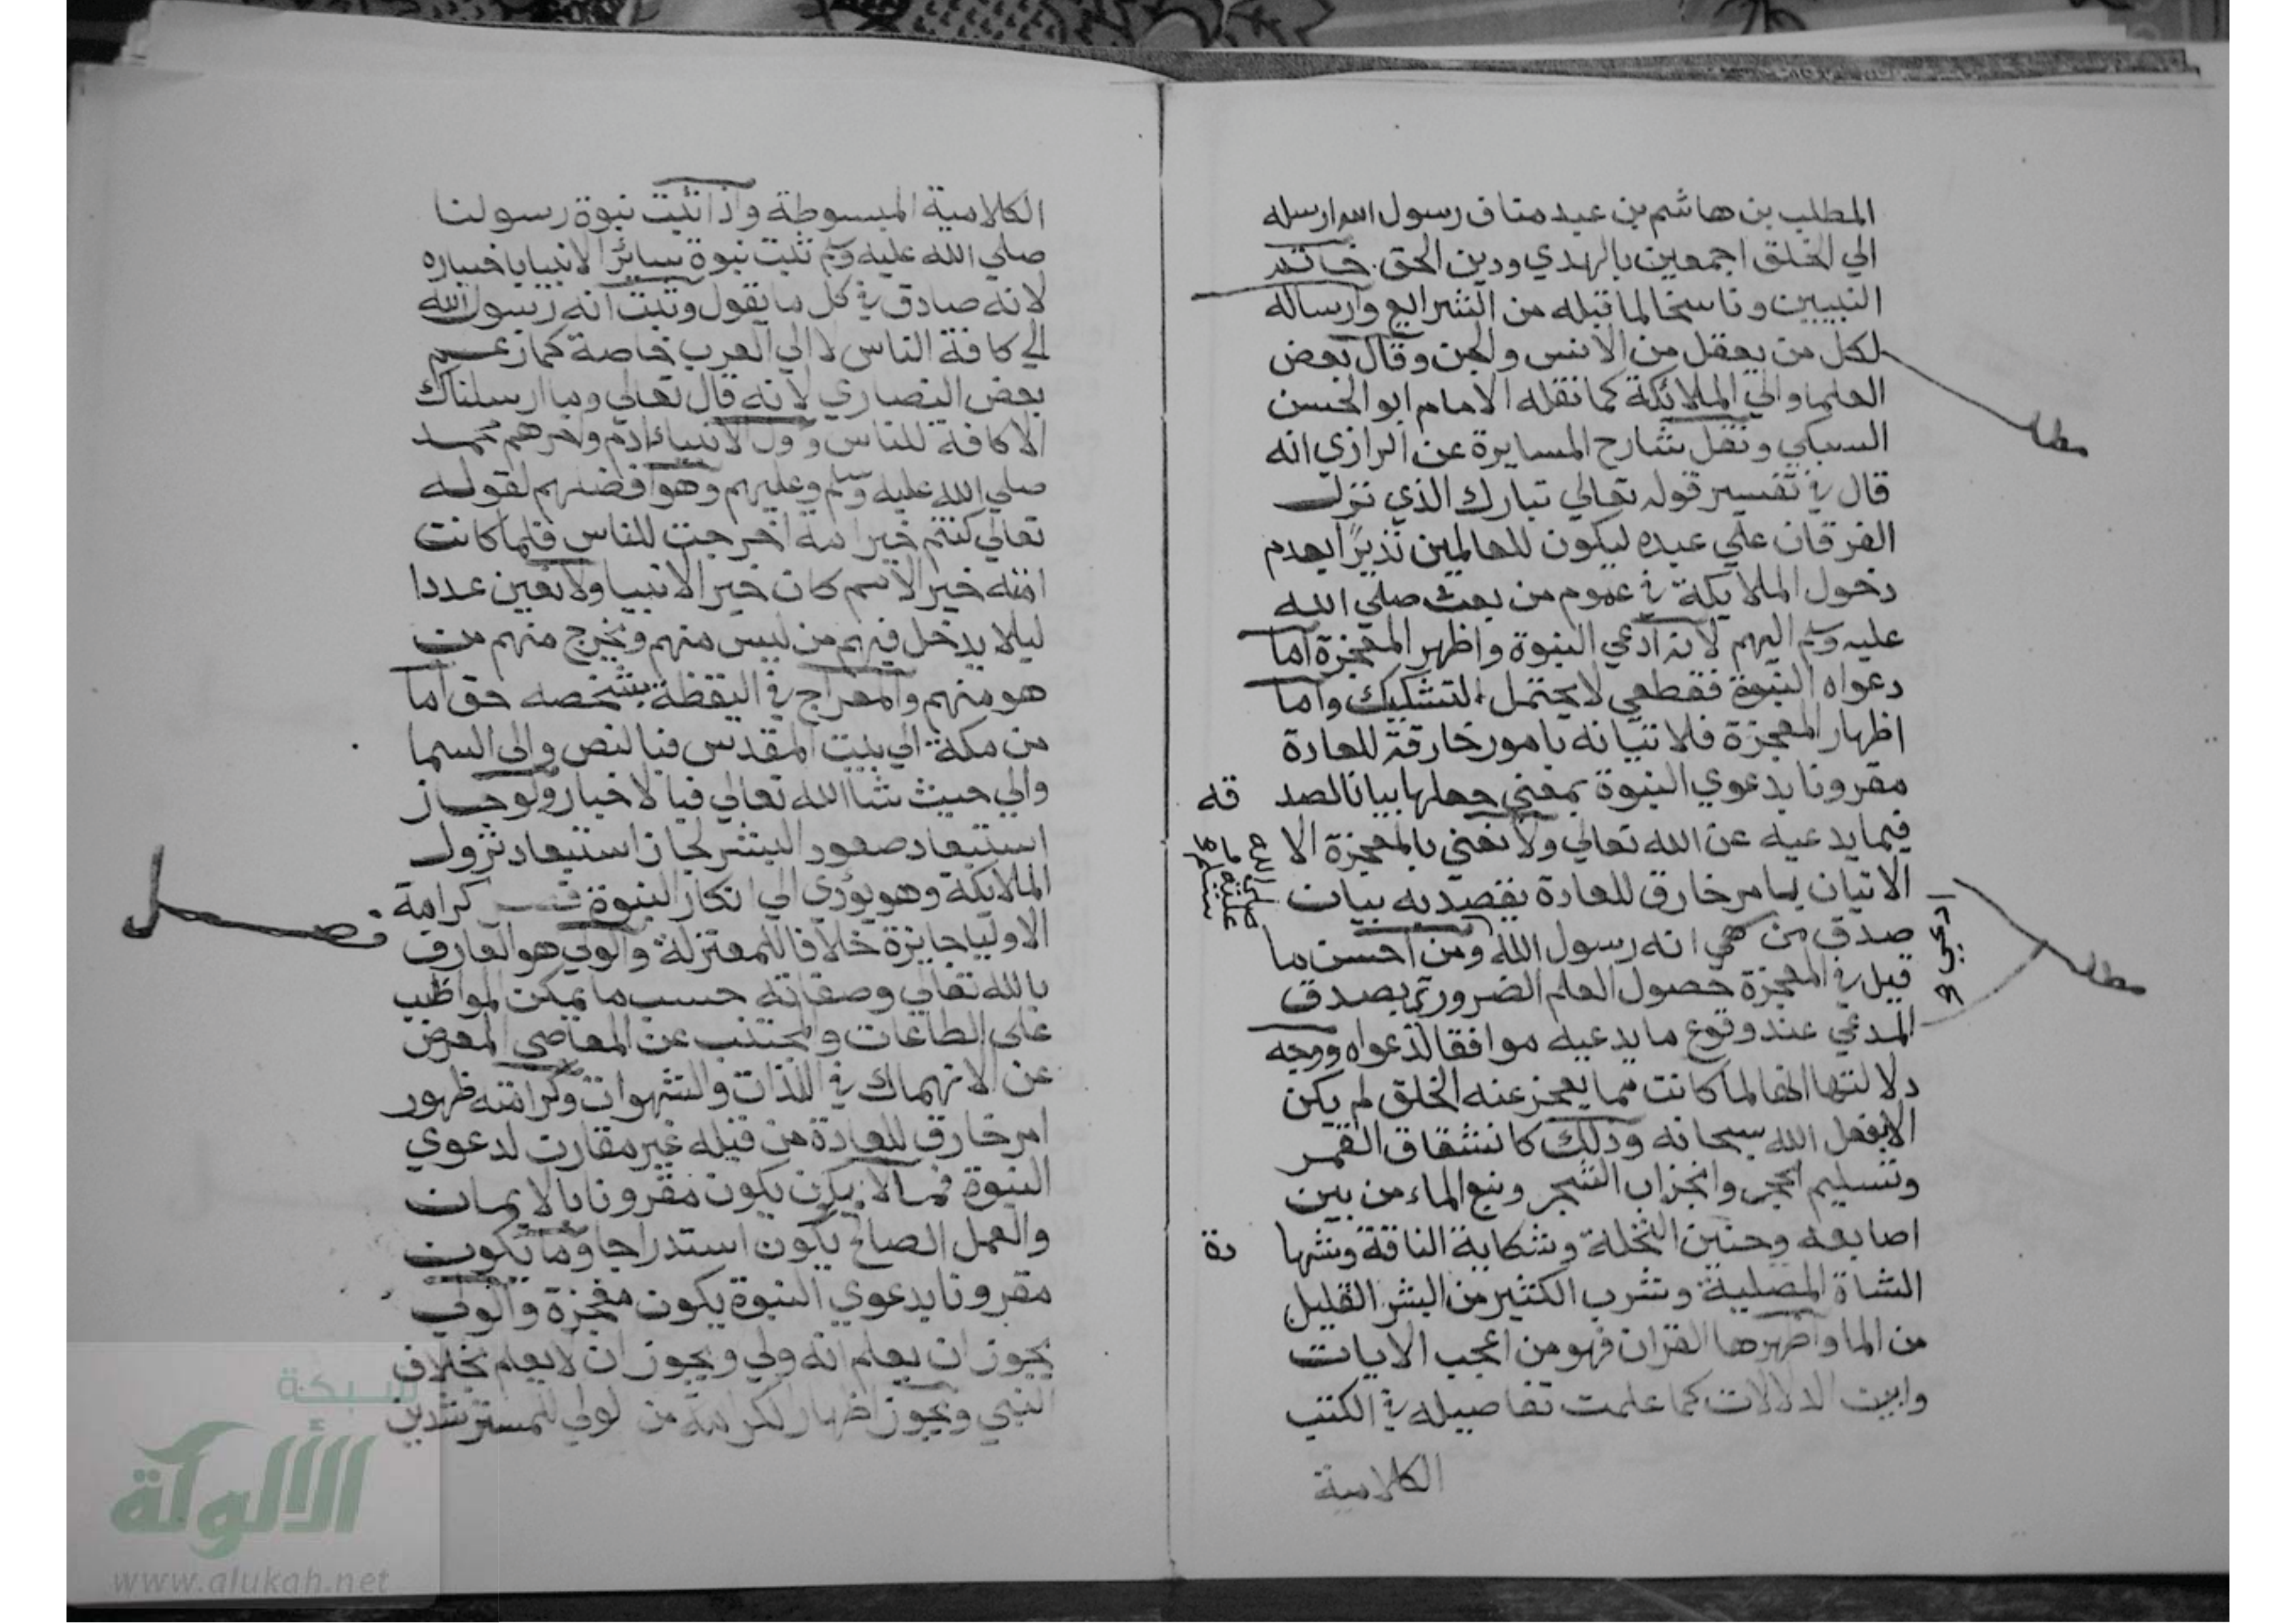 المطلب بن هاشم بن عبد مناف رسول الله ارسله
الي الخلق اجمعين بالهدي ودين الحق خاتم
النبيين وناسخا لما قبله من الشرايع وارساله
لكل من يعقل من الانس والجن وقال بعض
العلما والي الملائكة كما نقله الامام ابو الحسن
السبكي ونقل شارح المسايرة عن الرازي انه
قال في تفسير قوله تعالي تبارك الذي نزل
الفرقان علي عبده ليكون للعالمين نذيرًا بعدم
دخول الملايكة في عموم من بعث صلي الله
عليه وسلم اليهم لانه ادعي النبوة واظهر المعجزة اما
دعواه النبوة فقطعي لا يحتمل التشكيك واما
اظهار المعجزة فلاتيانه بامور خارقة للعادة
مقرونا بدعوي النبوة بمعني جعلها بيانا لصد قه
فيما يدعيه عن الله تعالي ولا نعني بالمعجزة الا
الاتيان بامر خارق للعادة يقصد به بيان
صدق من انه رسول الله ومن احسن ما
قيل في المعجزة حصول العلم الضروري بصدق
المدعي عند وقوع ما يدعيه موافقا لدعواه ووجه
دلالتها انها لما كانت مما يعجز عنه الخلق لم يكن
الا بفعل الله سبحانه وذلك كانشقاق القمر
وتسليم الحجر وانجذاب الشجر ونبع الماء من بين
اصابعه وحنين النخلة وشكاية الناقة وشها دة
الشاة المصلية وشرب الكثير من البشر القليل
من الما واظهرها القران فهو من اعجب الايات
وابين الدلالات كما علمت تفاصيله في الكتب
الكلامية
مطلب
ادعي
مطلب
صلي الله عليه وسلم
الكلامية المبسوطة واذا ثبت نبوة رسولنا
صلي الله عليه وسلم ثبت نبوة سائر الانبيا باخباره
لانه صادق في كل ما يقول وثبت انه رسول الله
الي كافة الناس لا الي العرب خاصة كما زعم
بعض النصاري لانه قال تعالي وما ارسلناك
الا كافة للناس واول الانبياء ادم واخرهم محمد
صلي الله عليه وسلم وعليهم وهو افضلهم لقوله
تعالي كنتم خير امة اخرجت للناس فلما كانت
امته خير الامم كان خير الانبيا ولا نعين عددا
ليلا يدخل فيهم من ليس منهم ويخرج منهم من
هو منهم والمعراج في اليقظة بشخصه حق اما
من مكة الي بيت المقدس فبالنص والي السما
والي حيث شاالله تعالي فبالاخبار ولو جاز
استبعاد صعود البشر لجاز استبعاد نزول
الملايكة وهو يؤدي الي انكار النبوة فصل كرامة
الاوليا جايزة خلافا للمعتزلة والولي هو العارف
بالله تعالي وصفاته حسب ما يمكن المواظب
على الطاعات والمجتنب عن المعاصي المعرض
عن الانهماك في اللذات والشهوات وكرامته ظهور
امر خارق للعادة من قبله غير مقارن لدعوي
النبوة فما لا يكون مقرونا بالايمان
والعمل الصالح يكون استدراجا وما يكون
مقرونا بدعوي النبوة يكون معجزة والولي
يجوز ان يعلم انه ولي ويجوز ان لا يعلم بخلاف
النبي ويجوز اظهار الكرامة من الولي للمسترشدين
فصل
شبكة
الألوكة
www.alukah.net